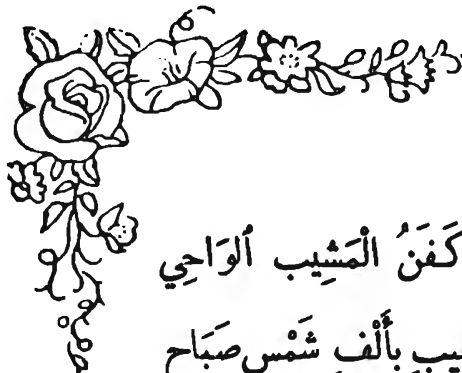 كَفَنُ الْمَشِيبِ ألوَاحِي
بِأَلْفِ شَمْسِ صَبَاحِ